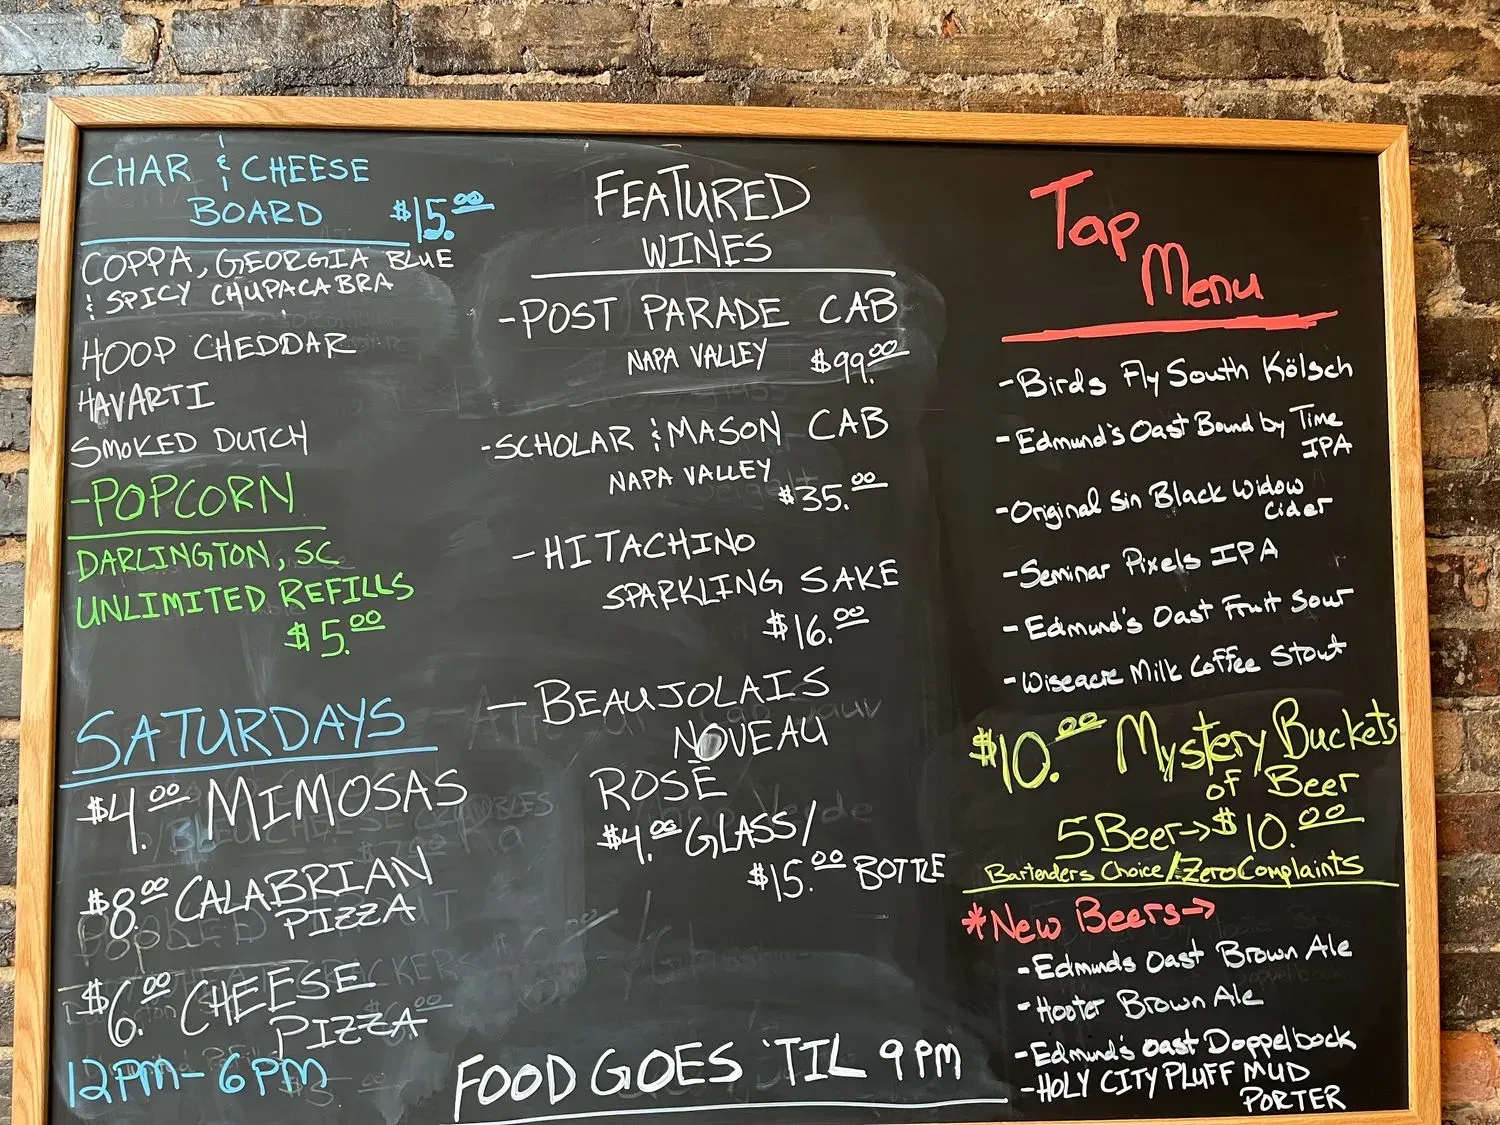 CHAR & CHEESE
BOARD $15.00
COPPA, GEORGIA BLUE
& SPICY CHUPACABRA
HOOP CHEDDAR
HAVARTI
SMOKED DUTCH
-POPCORN
DARLINGTON, SC
UNLIMITED REFILLS
$5.00
SATURDAYS
$4.00 MIMOSAS
$8.00 CALABRIAN
PIZZA
$6.00 CHEESE
PIZZA
12PM-6PM
FEATURED
WINES
-POST PARADE CAB
NAPA VALLEY $99.00
-SCHOLAR & MASON CAB
NAPA VALLEY
$35.00
-HITACHINO
SPARKLING SAKE
$16.00
-BEAUJOLAIS
NOVEAU
ROSÉ
$4.00 GLASS/
$15.00 BOTTLE
FOOD GOES 'TIL 9PM
Tap
Menu
-Birds Fly South Kölsch
-Edmund's Oast Bound by Time
IPA
-Original Sin Black Widow
Cider
-Seminar Pixels IPA
-Edmund's Oast Fruit Sour
-Wiseacre Milk Coffee Stout
$10.00 Mystery Buckets
of Beer
5 Beer→$10.00
Bartenders Choice/Zero Complaints
*New Beers→
-Edmunds Oast Brown Ale
-Hooter Brown Ale
-Edmund's Oast Doppelbock
-HOLY CITY PLUFF MUD
PORTER